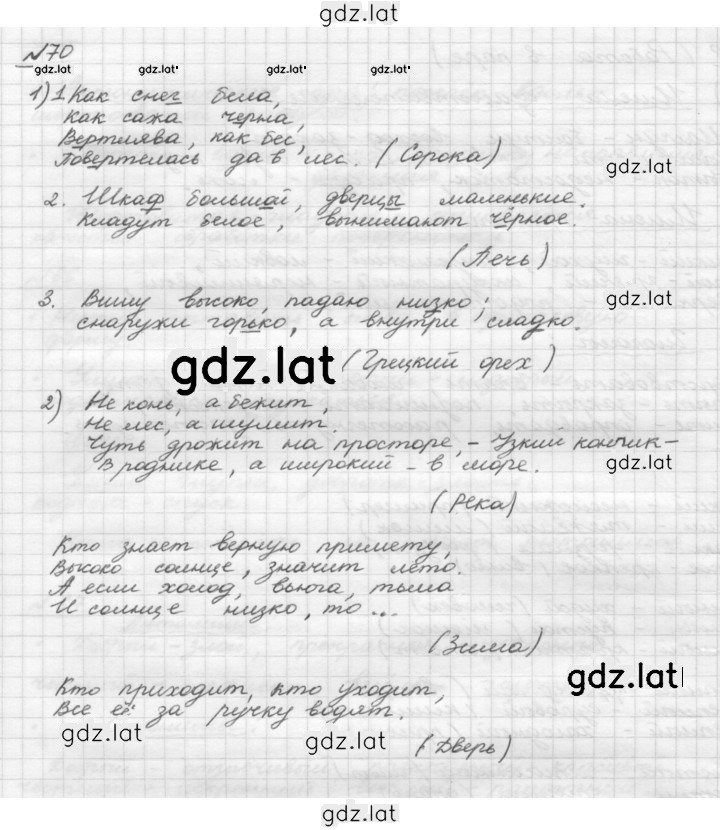 gdz.lat
№70
gdz.lat gdz.lat gdz.lat gdz.lat
1) 1. Как снег бела,
Как сажа черна,
Вертлява, как бес,
Повертелась да в лес. (Сорока)
gdz.lat
2. Шкаф большой, дверцы маленькие.
Кладут белое, вынимают чёрное.
(Печь)
3. Вишу высоко, падаю низко;
gdz.lat
снаружи горько, а внутри сладко.
gdz.lat
(Грецкий орех)
2) Не конь, а бежит,
Не лес, а шумит.
Чуть дрожит на просторе, - Узкий кончик -
В роднике, а широкий - в море.
gdz.lat
(Река)
Кто знает верную примету,
Высоко солнце, значит лето.
А если холод, вьюга, тьма
И солнце низко, то ...
(Зима)
gdz.lat
Кто приходит, кто уходит,
Все её за ручку водят.
gdz.lat gdz.lat
(Дверь)
gdz.lat